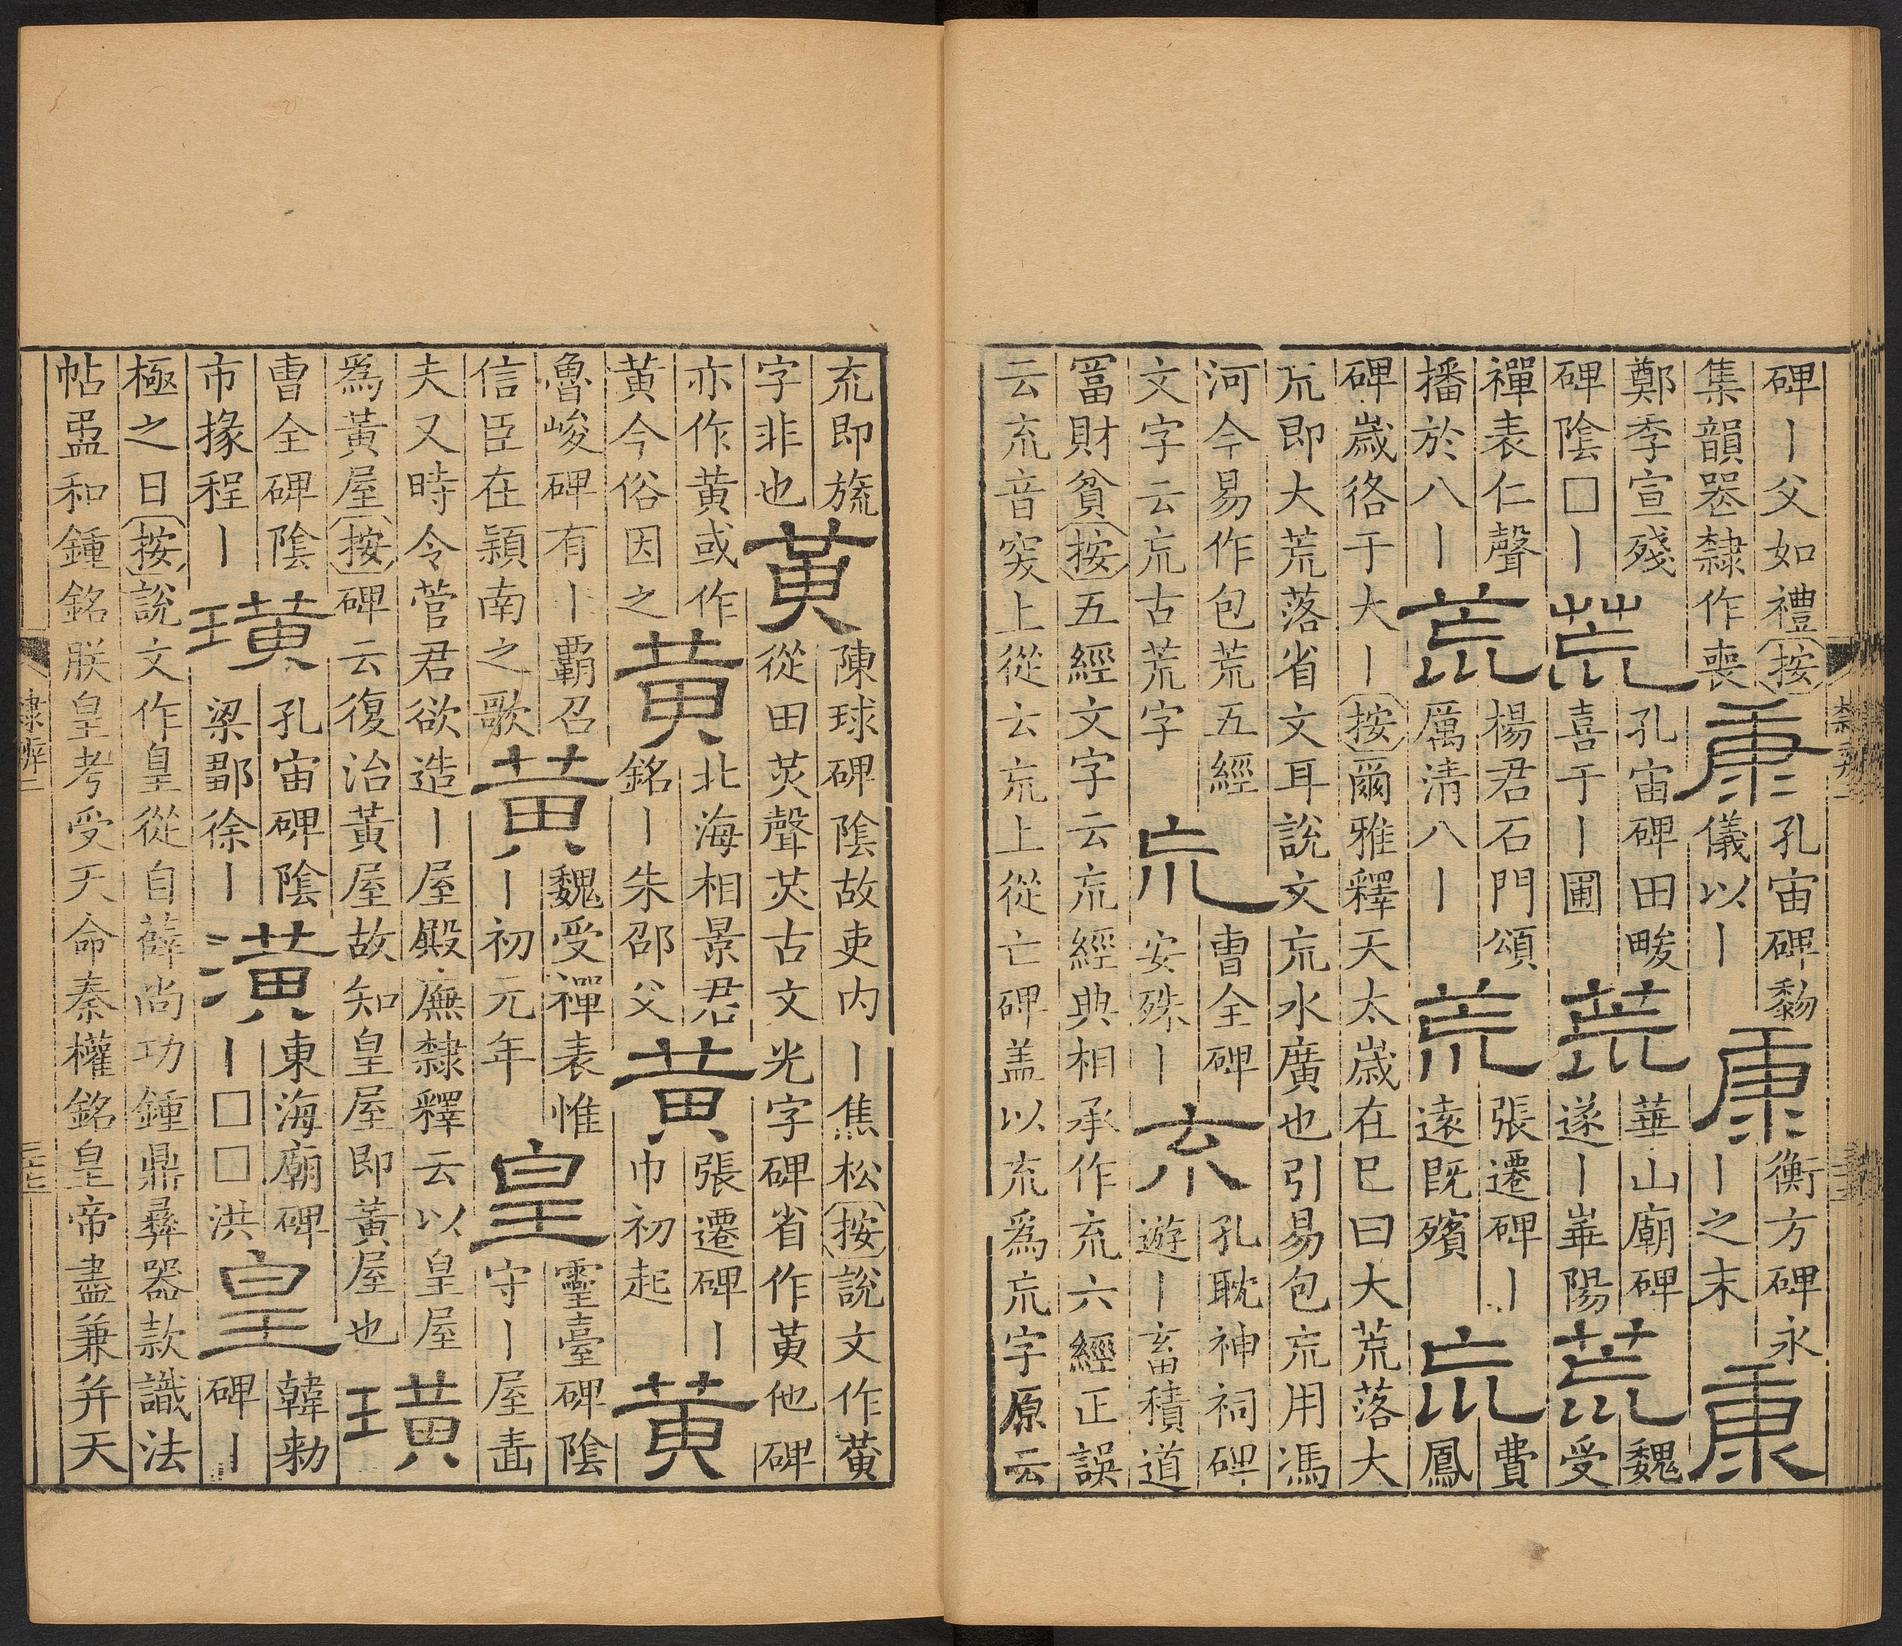 碑丨父如禮按
集韻㗊隸作喪
康
孔宙碑黐
儀以丨
康
衡方碑永
丨之末
康
鄭季宣殘
碑陰□丨
荒
孔宙碑田畯
喜于丨圃
荒
華山廟碑
遂丨崋陽
荒
魏
受
禪表仁聲
播於八丨
荒
楊君石門頌
厲清八丨
荒
張遷碑丨
遠既殯
巟
費
鳳
碑歲㣟于大丨按爾雅釋天太歲在巳曰大荒落大
巟即大荒落省文耳說文巟水廣也引易包巟用馮
河今易作包荒五經
文字云巟古荒字
巟
曹全碑
安殊丨
㐬
孔耽神祠碑
遊丨畜積道
富財貧按五經文字云巟經典相承作㐬六經正誤
云㐬音突上從𠫓巟上從亡碑盖以㐬爲巟字原云
㐬即旒
字非也
黃
陳球碑陰故吏内丨焦松按說文作黃
從田炗聲炗古文光字碑省作黄他碑
亦作黄或作
黃今俗因之
黃
北海相景君
銘丨朱邵父
黃
張遷碑丨
巾初起
黃
魯峻碑有丨覇召
信臣在潁南之歌
黃
魏受禪表惟
丨初元年
皇
靈臺碑陰
守丨屋嗇
夫又時令菅君欲造丨屋殿廡隸釋云以皇屋
爲黃屋按碑云復治黃屋故知皇屋即黃屋也
璜
曹全碑陰
市掾程丨
璜
孔宙碑陰
梁鄒徐丨
潢
東海廟碑
丨□□洪
皇
韓勑
碑丨
極之日按說文作皇從自薛尚功鍾鼎彝器款識法
帖盄和鍾銘朕皇考受天命秦權銘皇帝盡兼并天
隸辨二